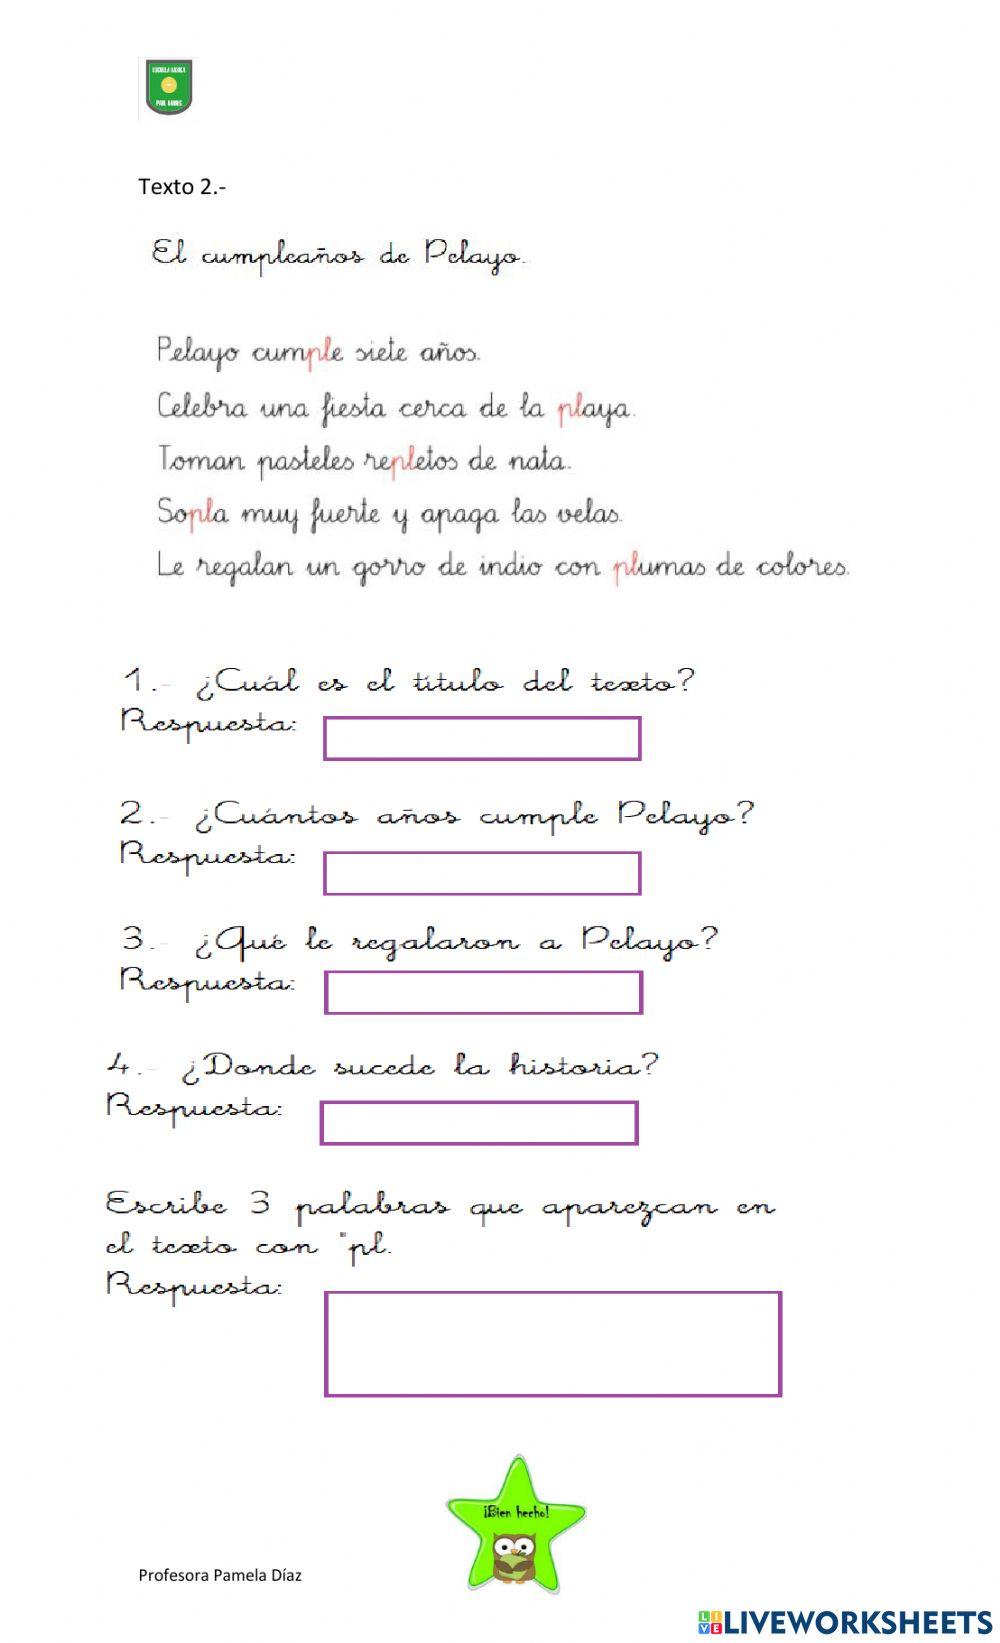 ESCUELA BASICA
PAUL HARRIS
Texto 2.-
El cumpleaños de Pelayo.
Pelayo cumple siete años.
Celebra una fiesta cerca de la playa.
Toman pasteles repletos de nata.
Sopla muy fuerte y apaga las velas.
Le regalan un gorro de indio con plumas de colores.
1.- ¿Cuál es el título del texto?
Respuesta:
2.- ¿Cuántos años cumple Pelayo?
Respuesta:
3.- ¿Qué le regalaron a Pelayo?
Respuesta:
4.- ¿Donde sucede la historia?
Respuesta:
Escribe 3 palabras que aparezcan en
el texto con "pl.
Respuesta:
¡Bien hecho!
Profesora Pamela Díaz
LIVE LIVEWORKSHEETS